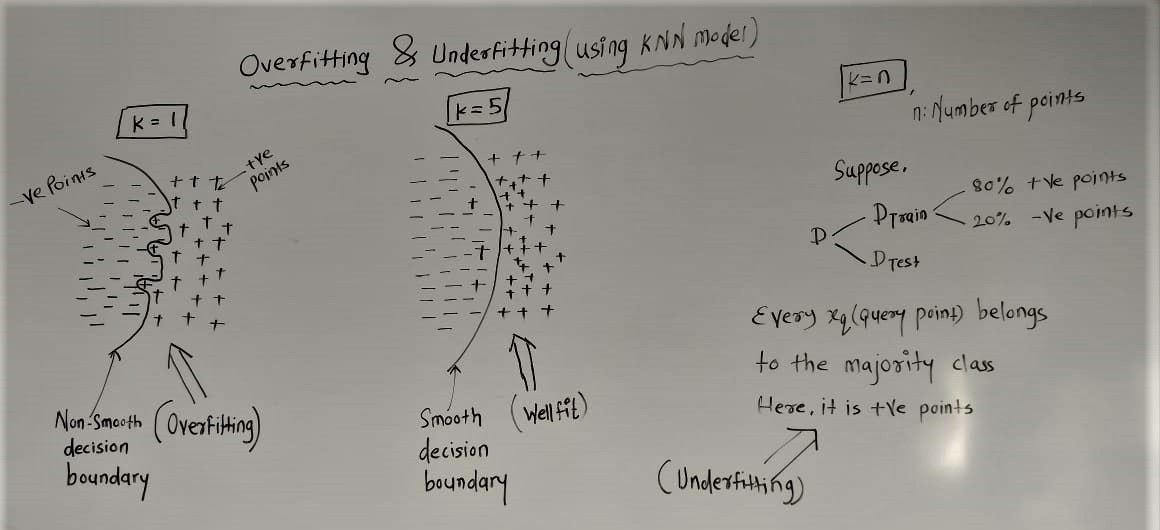 Overfitting & Underfitting (using KNN model)
K = 1
-ve Points
+ve
points
Non-Smooth
decision
boundary
(Overfitting)
K = 5
Smooth
decision
boundary
(Well fit)
K = n,
n: Number of points
Suppose,
D
DTrain
80% +ve points
20% -ve points
DTest
Every xq (query point) belongs
to the majority class
Here, it is +ve points
(Underfitting)